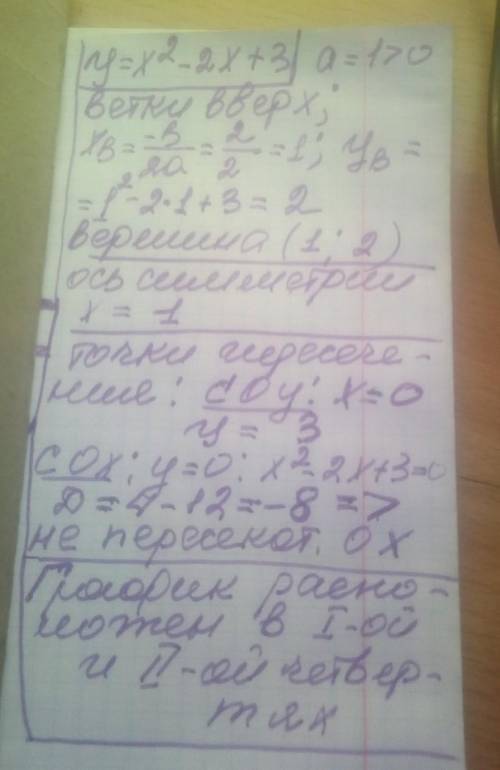 y=x²-2x+3 a=1>0
ветки вверх;
x_B = -B/2a = 2/2 = 1; y_B =
= 1²-2·1+3 = 2
вершина (1; 2)
ось симметрии
x = 1
точки пересече-
ния: с Oy: x=0
y = 3
с Ox; y=0: x²-2x+3=0
D=4-12=-8 =>
не пересекат. Ox
График распо-
ложен в I-ой
и II-ой четвер-
тях